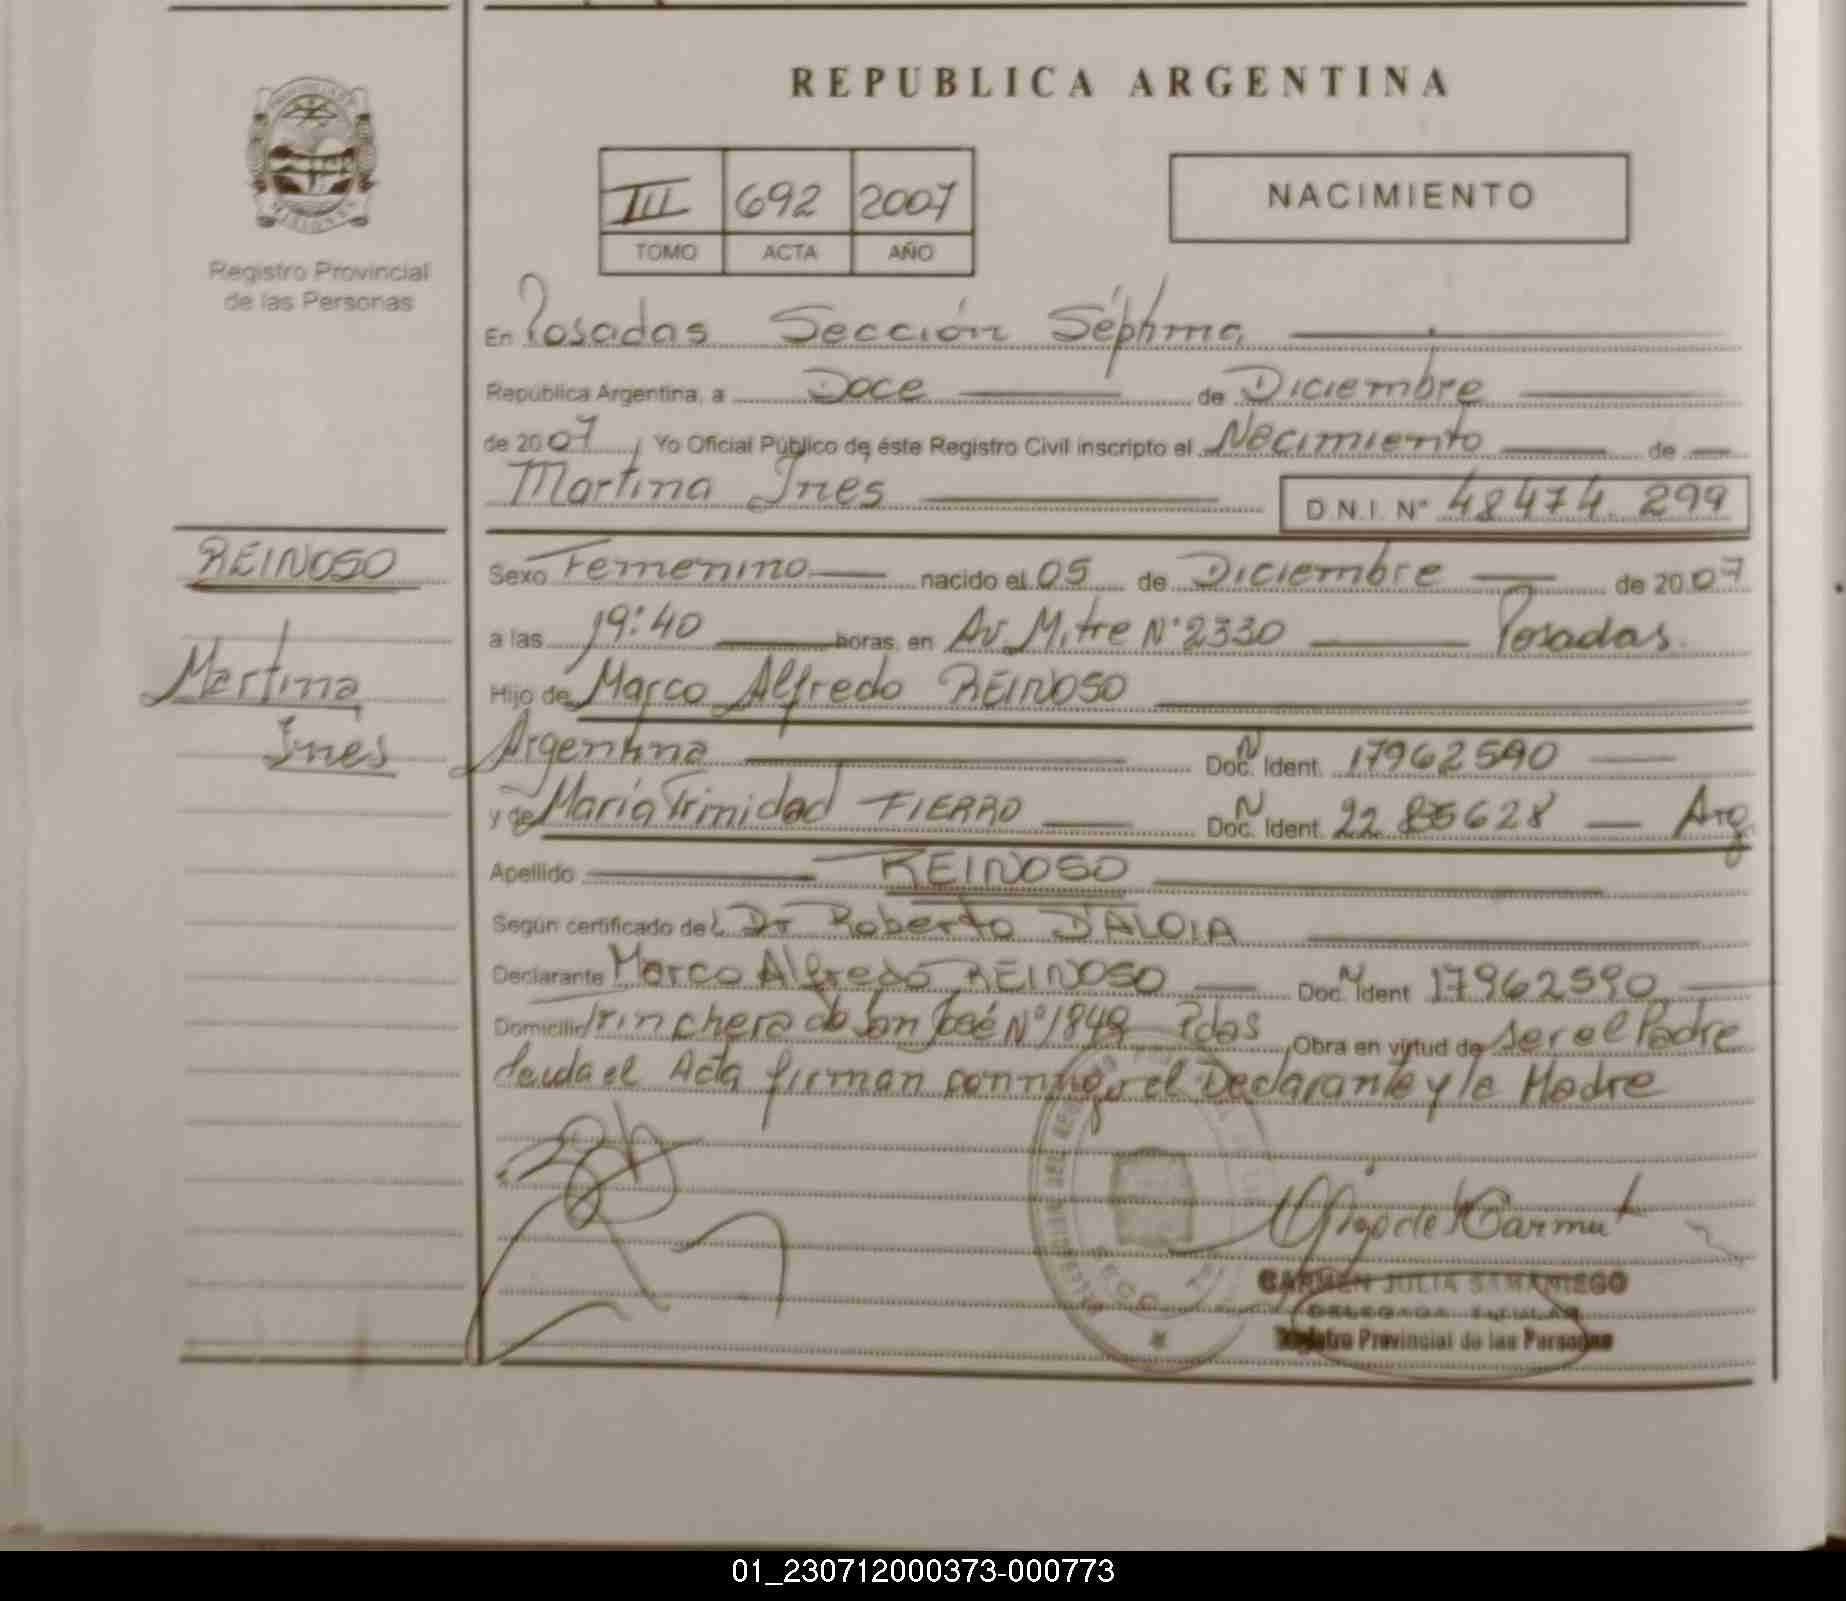 REPUBLICA ARGENTINA
III 692 2007
TOMO ACTA AÑO
NACIMIENTO
Registro Provincial
de las Personas
En Posadas Sección Séptima
República Argentina, a Doce de Diciembre
de 2007, Yo Oficial Público de éste Registro Civil inscripto el Nacimiento de
Martina Ines D.N.I. N° 48474.299
REINOSO
Martina
Ines
Sexo Femenino nacido el 05 de Diciembre de 2007
a las 19:40 horas, en Av. Mitre N° 2330 Posadas.
Hijo de Marco Alfredo REINOSO
Argentina Doc. N Ident. 17962590
y de María Trinidad FIERRO Doc. N Ident. 22 628 Arg
Apellido REINOSO
Según certificado del Dr Roberto D'ALOIA
Declarante Marco Alfredo REINOSO Doc. N Ident 17962590
Domicilio Trinchera de San José N° 1849 Pdas Obra en virtud de ser el Padre
Leída el Acta firman conmigo el Declarante y la Madre
CARMEN JULIA SAMANIEGO
DELEGADA TITULAR
Registro Provincial de las Personas
01_230712000373-000773